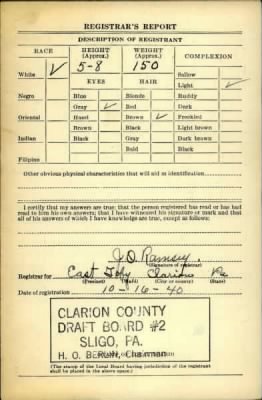 REGISTRAR'S REPORT
DESCRIPTION OF REGISTRANT
RACE HEIGHT (Approx.) WEIGHT (Approx.) COMPLEXION
White ✓ 5-8 150 Sallow
EYES HAIR Light ✓
Negro Blue Blonde Ruddy
Gray ✓ Red Dark
Oriental Hazel Brown ✓ Freckled
Brown Black Light brown
Indian Black Gray Dark brown
Bald Black
Filipino
Other obvious physical characteristics that will aid in identification
I certify that my answers are true; that the person registered has read or has had read to him his own answers; that I have witnessed his signature or mark and that all of his answers of which I have knowledge are true, except as follows:
J.O. Ramsey
(Signature of registrar)
Registrar for East Toby Clarion Pa
(Precinct) (Ward) (City or county) (State)
Date of registration 10-16-40
CLARION COUNTY
DRAFT BOARD #2
SLIGO, PA.
H. O. BERLIN, Chairman
(The stamp of the Local Board having jurisdiction of the registrant
shall be placed in the above space.)